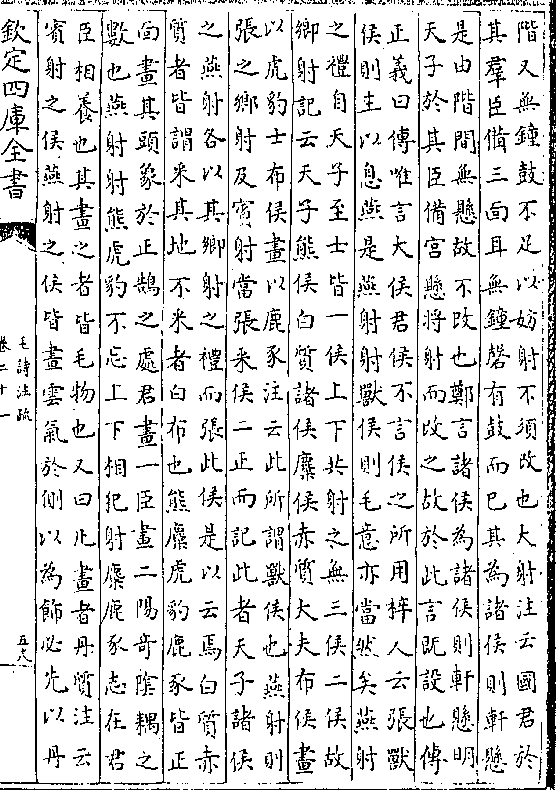 階又無鐘鼓不足以妨射不須改也大射注云國君於
其羣臣備三面耳無鐘磬有鼓而已其為諸侯則軒懸
是由階間無懸故不改也鄭言諸侯為諸侯則軒懸明
天子於其臣備宮懸將射而改之故於此言既設也傳
正義曰傳唯言大侯君侯不言侯之所用梓人云張獸
侯則王以息燕是燕射射獸侯則毛意亦當然矣燕射
之禮自天子至士皆一侯上下共射之無三侯二侯故
鄉射記云天子熊侯白質諸侯麋侯赤質大夫布侯畫
以虎豹士布侯畫以鹿豕注云此所謂獸侯也燕射則
張之鄉射及賓射當張采侯二正而記此者天子諸侯
之燕射各以其鄉射之禮而張此侯是以云焉白質赤
質者皆謂采其地不采者白布也熊麋虎豹鹿豕皆正
面畫其頭象於正鵠之處君畫一臣畫二陽奇陰耦之
數也燕射射熊虎豹不忘上下相犯射麋鹿豕志在君
臣相養也其畫之者皆毛物也又曰凡畫者丹質注云
賓射之侯燕射之侯皆畫雲氣於側以為飾必先以丹
欽定四庫全書
毛詩注疏
卷二十一
五八